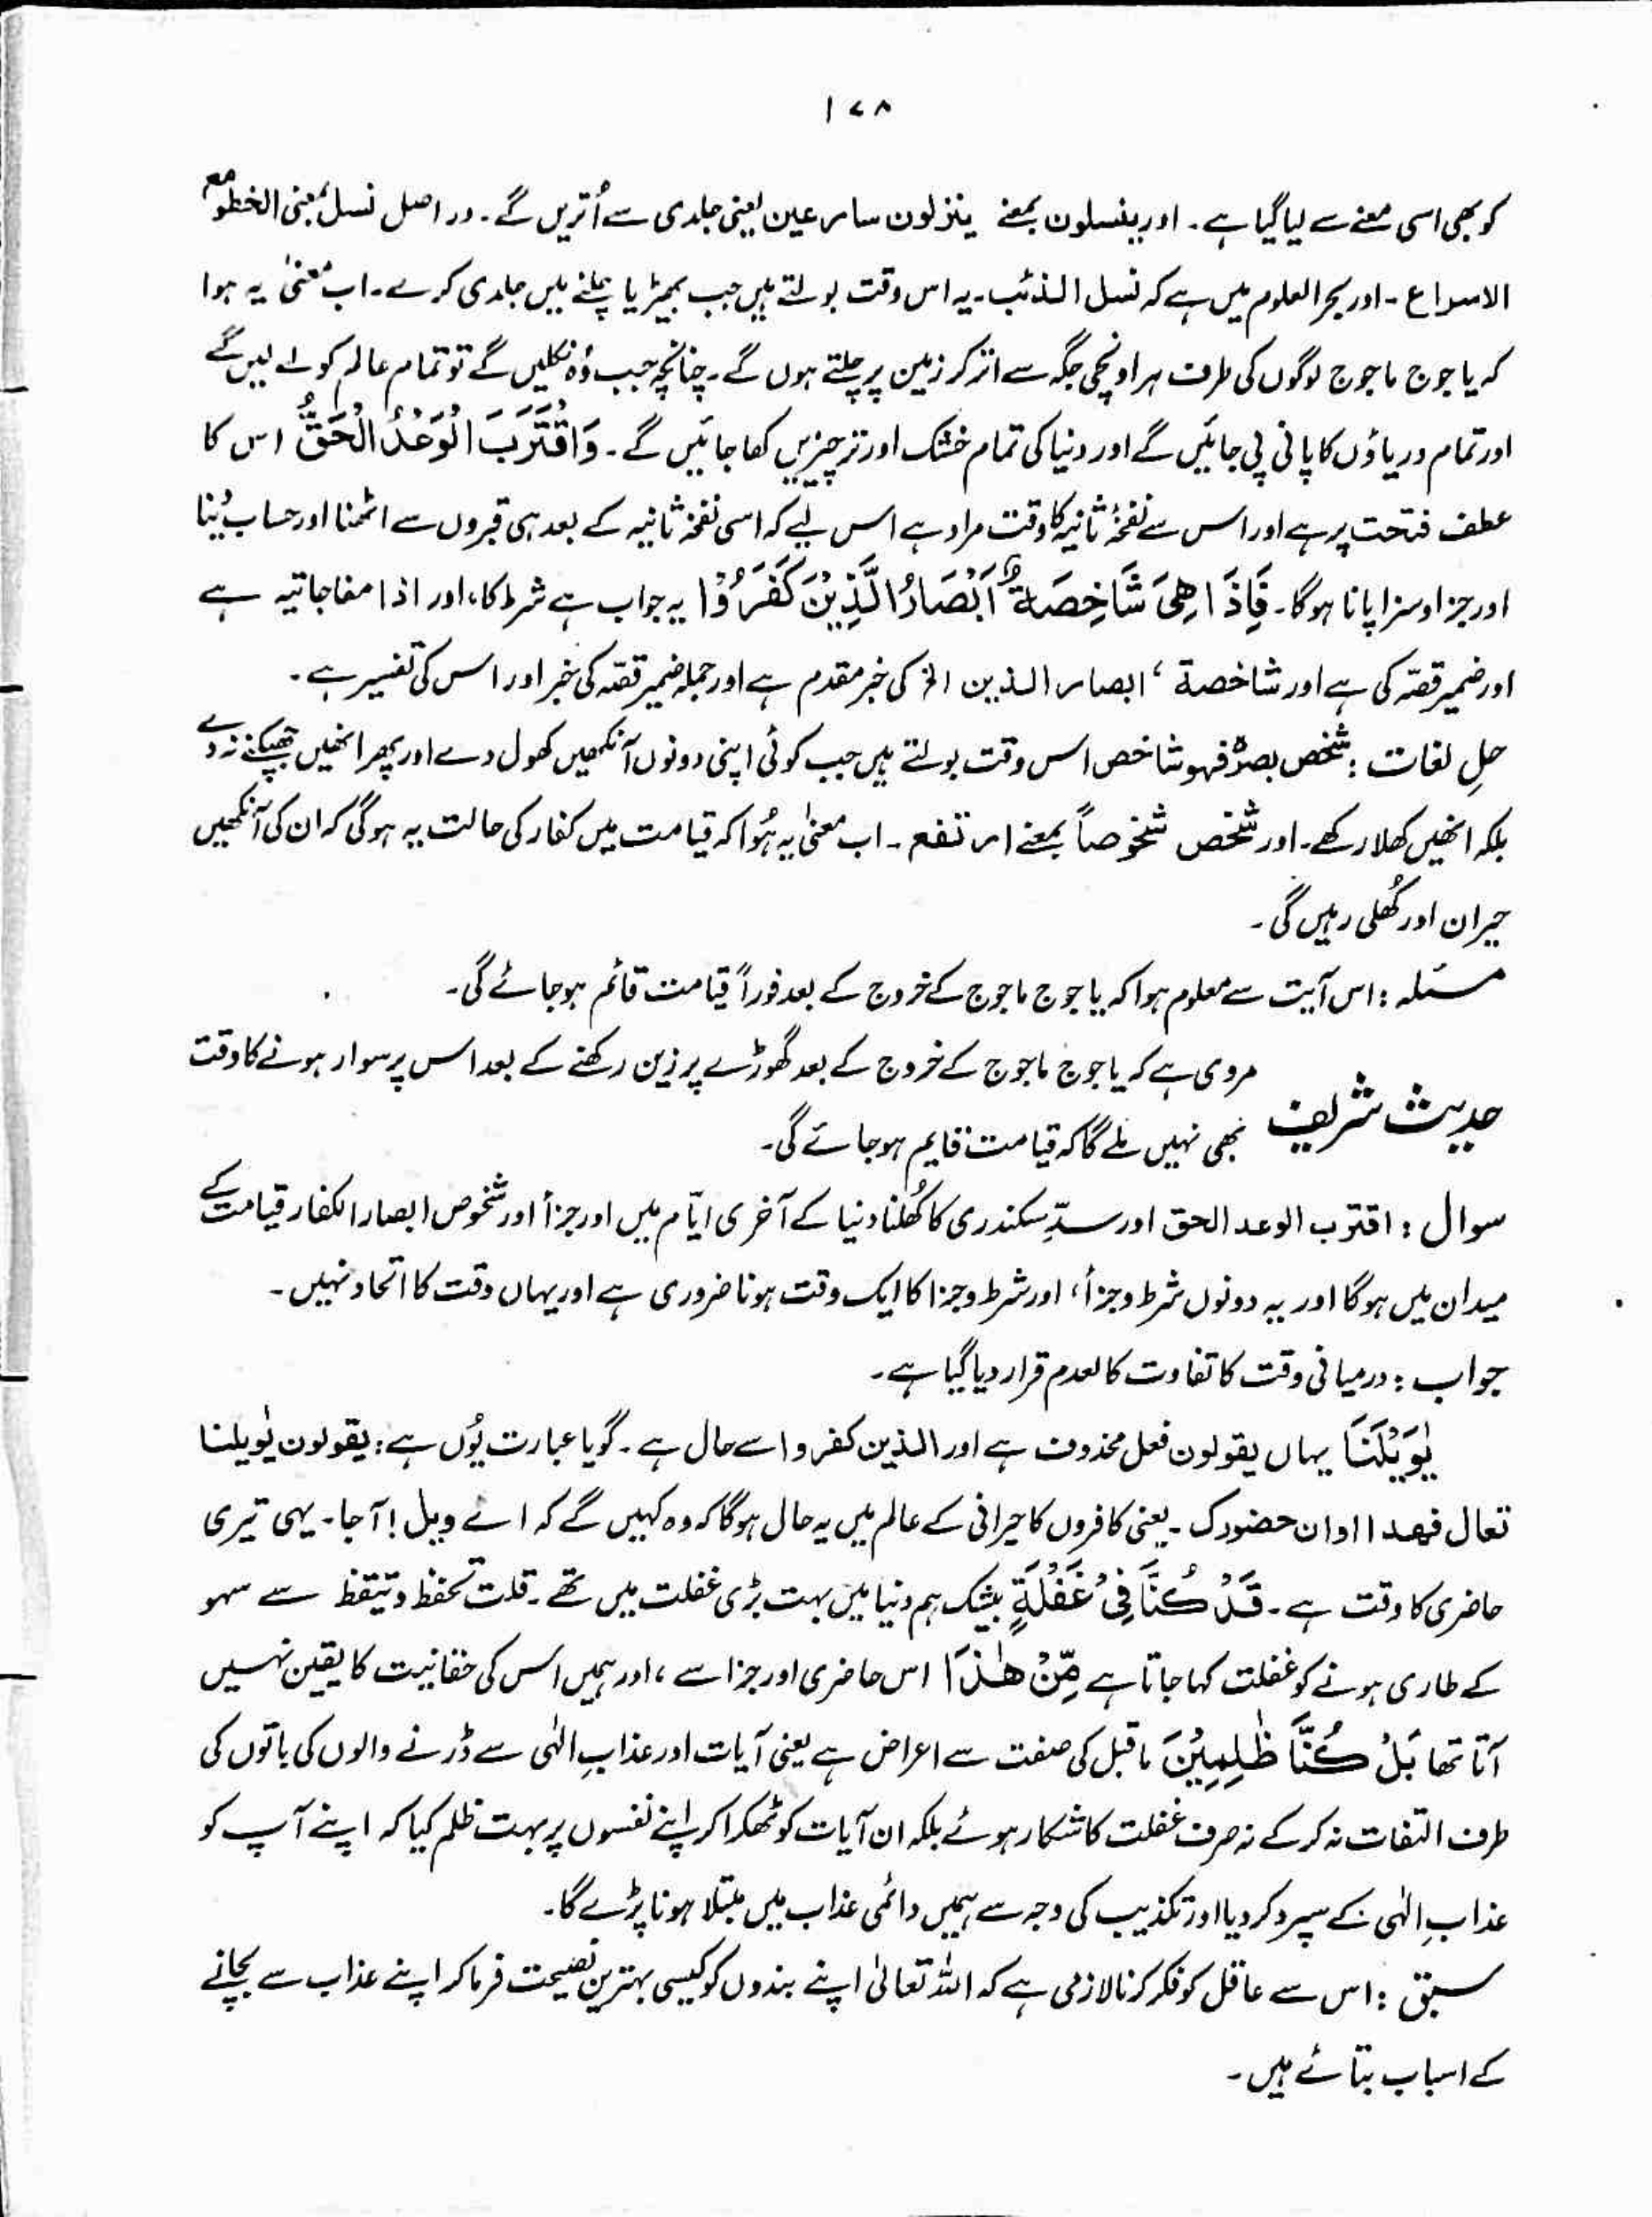 ۱۷۸
کو بھی اسی معنے سے لیا گیا ہے۔ اور ینسلون بمعنے ینزلون سارعین یعنی جلدی سے اُتریں گے۔ در اصل نسل بمعنی الخطو مع
الاسراع۔ اور بحر العلوم میں ہے کہ نسل الذئب۔ یہ اس وقت بولتے ہیں جب بھیڑیا چلنے میں جلدی کرے۔ اب معنیٰ یہ ہوا
کہ یاجوج ماجوج لوگوں کی طرف ہر اونچی جگہ سے اتر کر زمین پر چلتے ہوں گے۔ چنانچہ جب وُہ نکلیں گے تو تمام عالم کو لے لیں گے
اور تمام دریاؤں کا پانی پی جائیں گے اور دنیا کی تمام خشک اور تر چیزیں کھا جائیں گے۔ وَاقْتَرَبَ الْوَعْدُ الْحَقُّ اس کا
عطف فتحت پر ہے اور اس سے نفخۂ ثانیہ کا وقت مراد ہے اس لیے کہ اسی نفخۂ ثانیہ کے بعد ہی قبروں سے اٹھنا اور حساب دُینا
اور جزا و سزا پانا ہوگا۔ فَاِذَا هِیَ شَاخِصَةٌ اَبْصَارُ الَّذِیْنَ كَفَرُوْا یہ جواب ہے شرط کا، اور اذا مفاجاتیہ ہے
اور ضمیر قصّہ کی ہے اور شاخصة ، ابصار الذین الخ کی خبر مقدم ہے اور جملہ ضمیر قصّہ کی خبر اور اس کی تفسیر ہے۔
حلِ لغات : شخص بصرہٗ فہو شاخص اس وقت بولتے ہیں جب کوئی اپنی دونوں آنکھیں کھول دے اور پھر انھیں جھپکنے نہ دے
بلکہ انھیں کھلا رکھے۔ اور شخص شخوصاً بمعنے ارتفع۔ اب معنیٰ یہ ہُوا کہ قیامت میں کفار کی حالت یہ ہوگی کہ ان کی آنکھیں
حیران اور کُھلی رہیں گی۔
مسئلہ : اس آیت سے معلوم ہوا کہ یاجوج ماجوج کے خروج کے بعد فوراً قیامت قائم ہو جائے گی۔
حدیث شریف مروی ہے کہ یاجوج ماجوج کے خروج کے بعد گھوڑے پر زین رکھنے کے بعد اس پر سوار ہونے کا وقت
بھی نہیں ملے گا کہ قیامت قایم ہو جائے گی۔
سوال : اقترب الوعد الحق اور سدِّ سکندری کا کُھلنا دنیا کے آخری ایّام میں اور جزأ اور شخوص ابصار الکفار قیامت کے
میدان میں ہوگا اور یہ دونوں شرط و جزأ، اور شرط و جزا کا ایک وقت ہونا ضروری ہے اور یہاں وقت کا اتحاد نہیں۔
جواب : درمیانی وقت کا تفاوت کالعدم قرار دیا گیا ہے۔
یٰوَیْلَنَا یہاں یقولون فعل محذوف ہے اور الذین کفروا سے حال ہے۔ گویا عبارت یُوں ہے : یقولون یٰویلنا
تعال فھذا اوان حضورک۔ یعنی کافروں کا حیرانی کے عالم میں یہ حال ہوگا کہ وہ کہیں گے کہ اے ویل! آجا۔ یہی تیری
حاضری کا وقت ہے۔ قَدْ كُنَّا فِیْ غَفْلَةٍ بیشک ہم دنیا میں بہت بڑی غفلت میں تھے۔ قلت تحفظ و تیقظ سے سہو
کے طاری ہونے کو غفلت کہا جاتا ہے مِّنْ هٰذَا اس حاضری اور جزا سے، اور ہمیں اس کی حقانیت کا یقین نہیں
آتا تھا بَلْ كُنَّا ظٰلِمِیْنَ ماقبل کی صفت سے اعراض ہے یعنی آیات اور عذابِ الٰہی سے ڈرنے والوں کی باتوں کی
طرف التفات نہ کر کے نہ صرف غفلت کا شکار ہوئے بلکہ ان آیات کو ٹھکرا کر اپنے نفسوں پر بہت ظلم کیا کہ اپنے آپ کو
عذابِ الٰہی کے سپرد کر دیا اور تکذیب کی وجہ سے ہمیں دائمی عذاب میں مبتلا ہونا پڑے گا۔
سبق : اس سے عاقل کو فکر کرنا لازمی ہے کہ اللہ تعالیٰ اپنے بندوں کو کیسی بہترین نصیحت فرما کر اپنے عذاب سے بچانے
کے اسباب بتائے ہیں۔